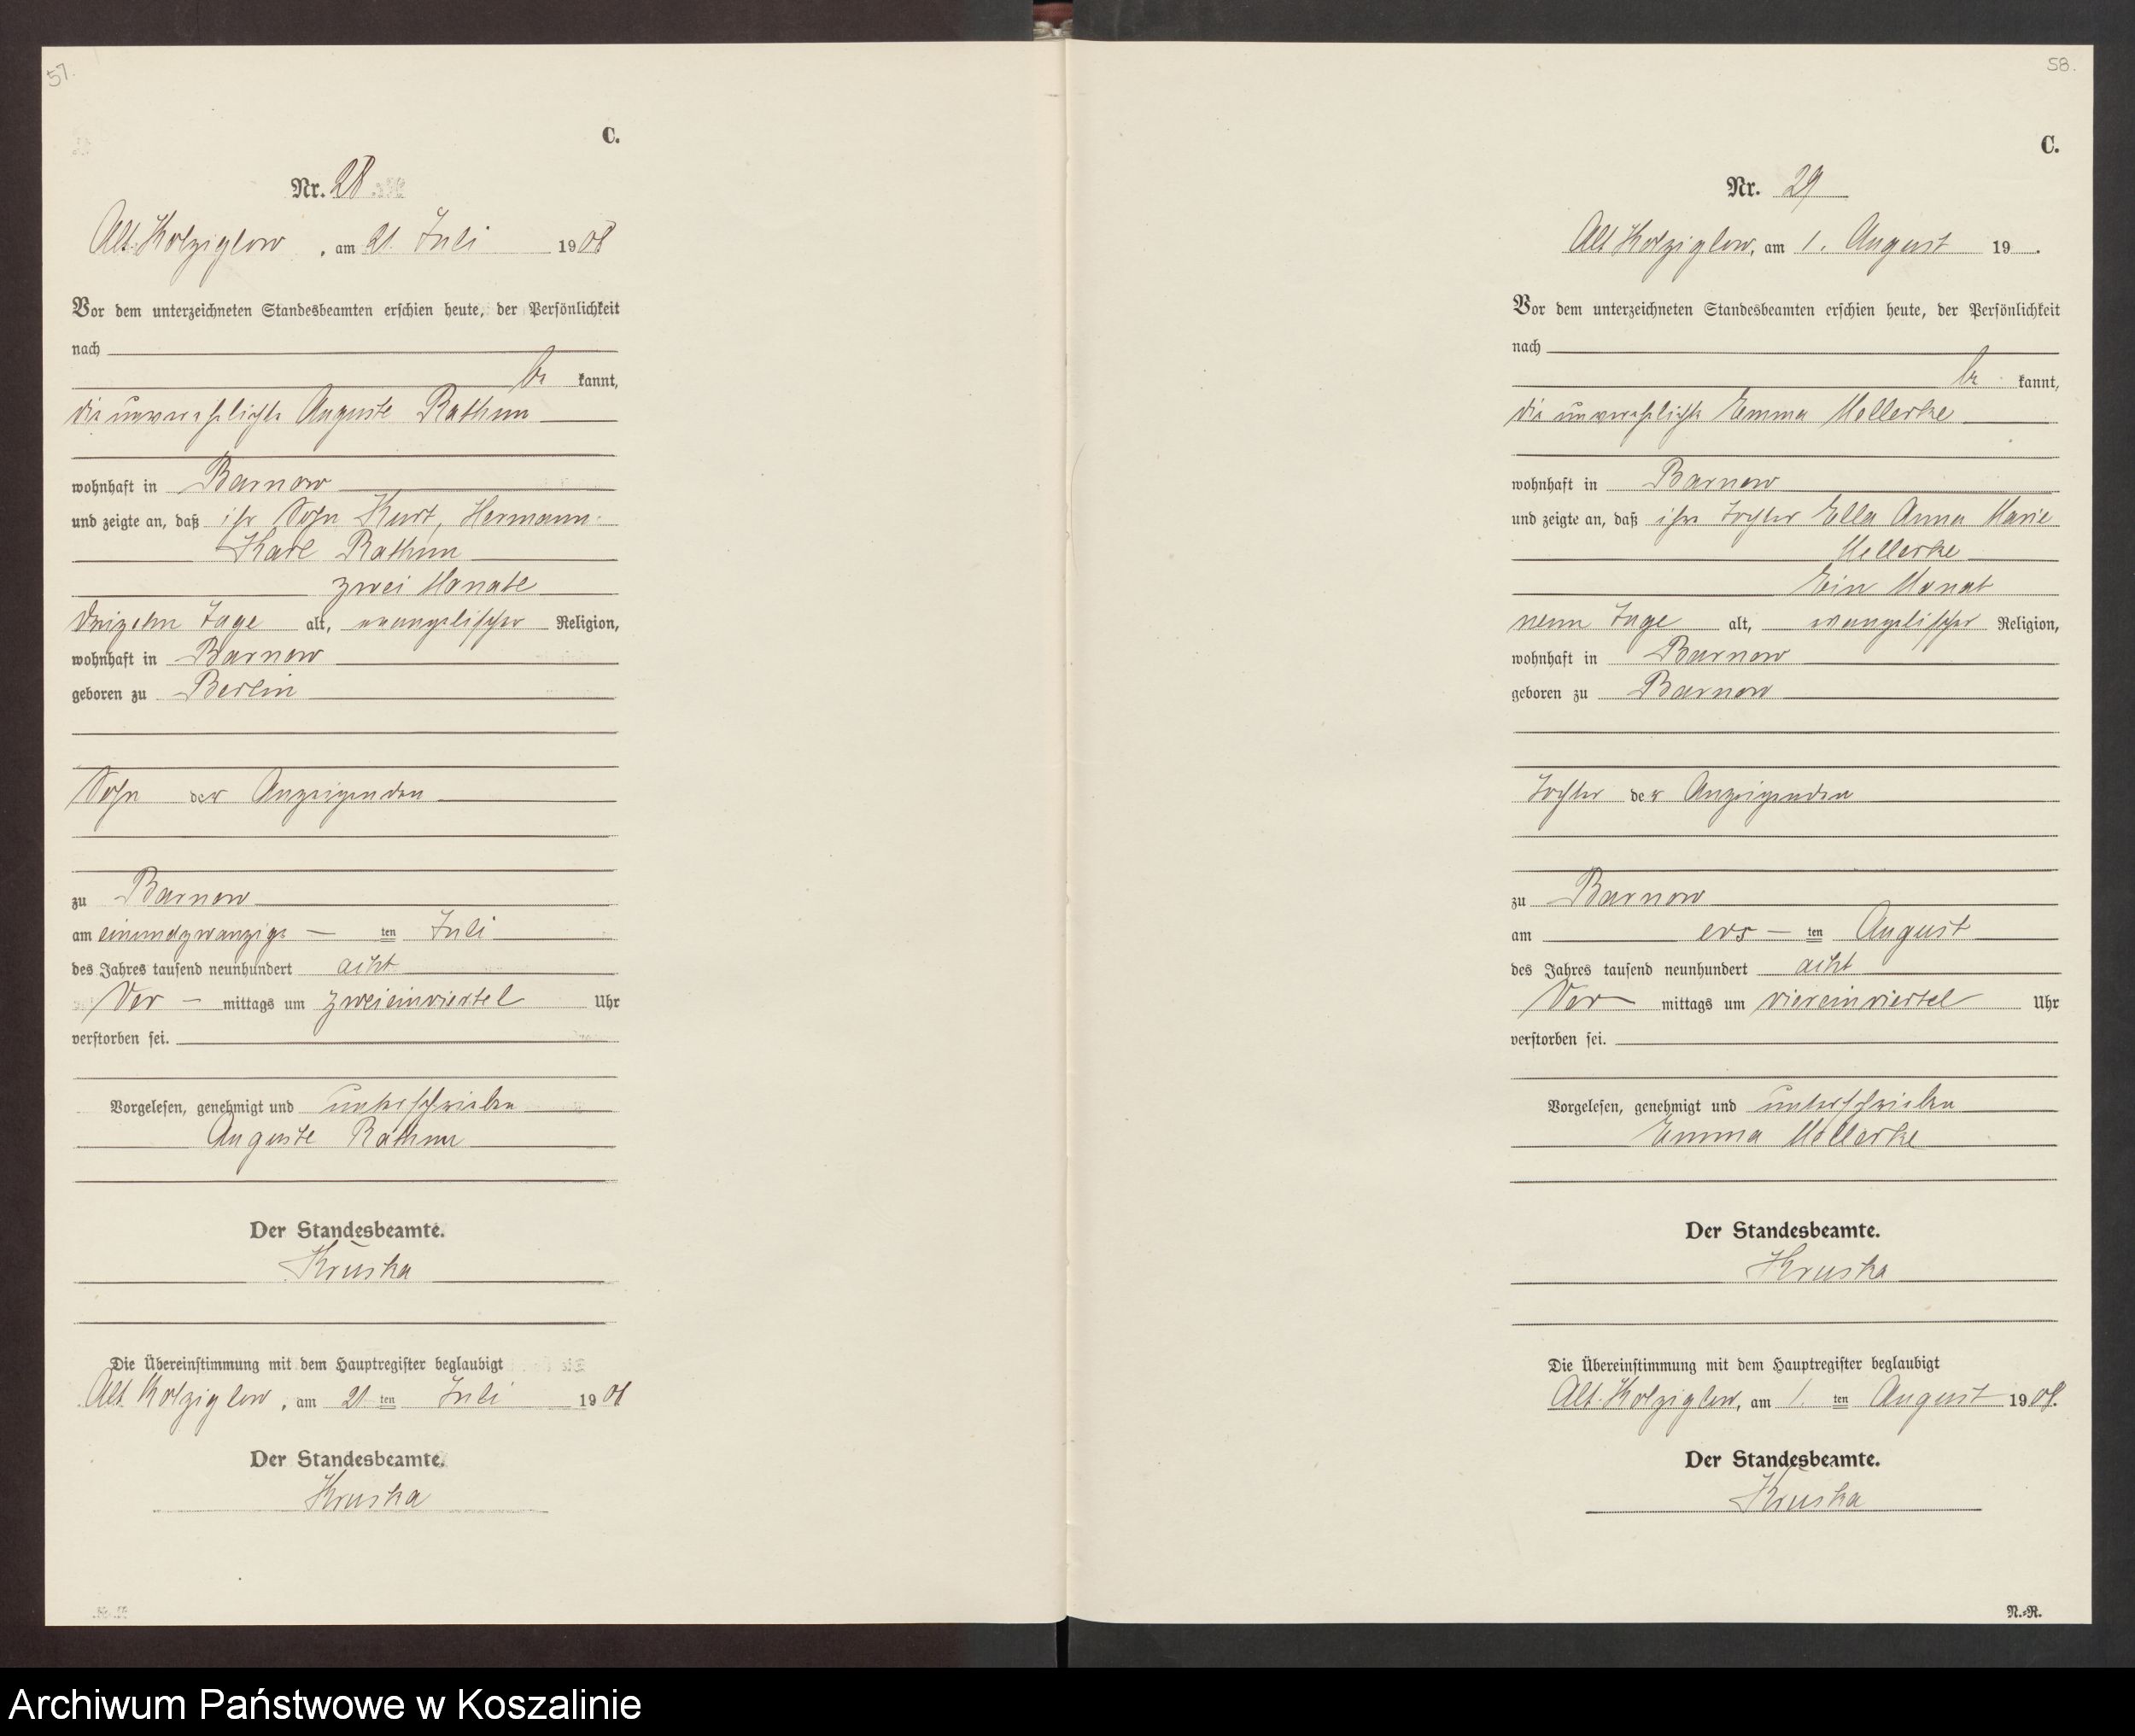 57.
C.
Nr. 28
Alt Kolziglow, am 21. Juli 1908
Vor dem unterzeichneten Standesbeamten erschien heute, der Persönlichkeit
nach
be kannt,
die unverehelichte Auguste Rathun
wohnhaft in Barnow
und zeigte an, daß ihr Sohn Kurt, Hermann
Karl Rathun
zwei Monate
dreizehn Tage alt, evangelischer Religion,
wohnhaft in Barnow
geboren zu Berlin
Sohn der Anzeigenden
zu Barnow
am einundzwanzigs — ten Juli
des Jahres tausend neunhundert acht
Vor — mittags um zweieinviertel Uhr
verstorben sei.
Vorgelesen, genehmigt und unterschrieben
Auguste Rathun
Der Standesbeamte.
Kruska
Die Übereinstimmung mit dem Hauptregister beglaubigt
Alt Kolziglow, am 21 ten Juli 1908
Der Standesbeamte.
Kruska
58.
C.
Nr. 29
Alt Kolziglow, am 1. August 19 .
Vor dem unterzeichneten Standesbeamten erschien heute, der Persönlichkeit
nach
be kannt,
die unverehelichte Emma Mellerke
wohnhaft in Barnow
und zeigte an, daß ihre Tochter Ella Anna Marie
Mellerke
Ein Monat
neun Tage alt, evangelischer Religion,
wohnhaft in Barnow
geboren zu Barnow
Tochter der Anzeigenden
zu Barnow
am ers — ten August
des Jahres tausend neunhundert acht
Vor — mittags um viereinviertel Uhr
verstorben sei.
Vorgelesen, genehmigt und unterschrieben
Emma Mellerke
Der Standesbeamte.
Kruska
Die Übereinstimmung mit dem Hauptregister beglaubigt
Alt-Kolziglow, am 1. ten August 1908.
Der Standesbeamte.
Kruska
N.-R.
Archiwum Państwowe w Koszalinie